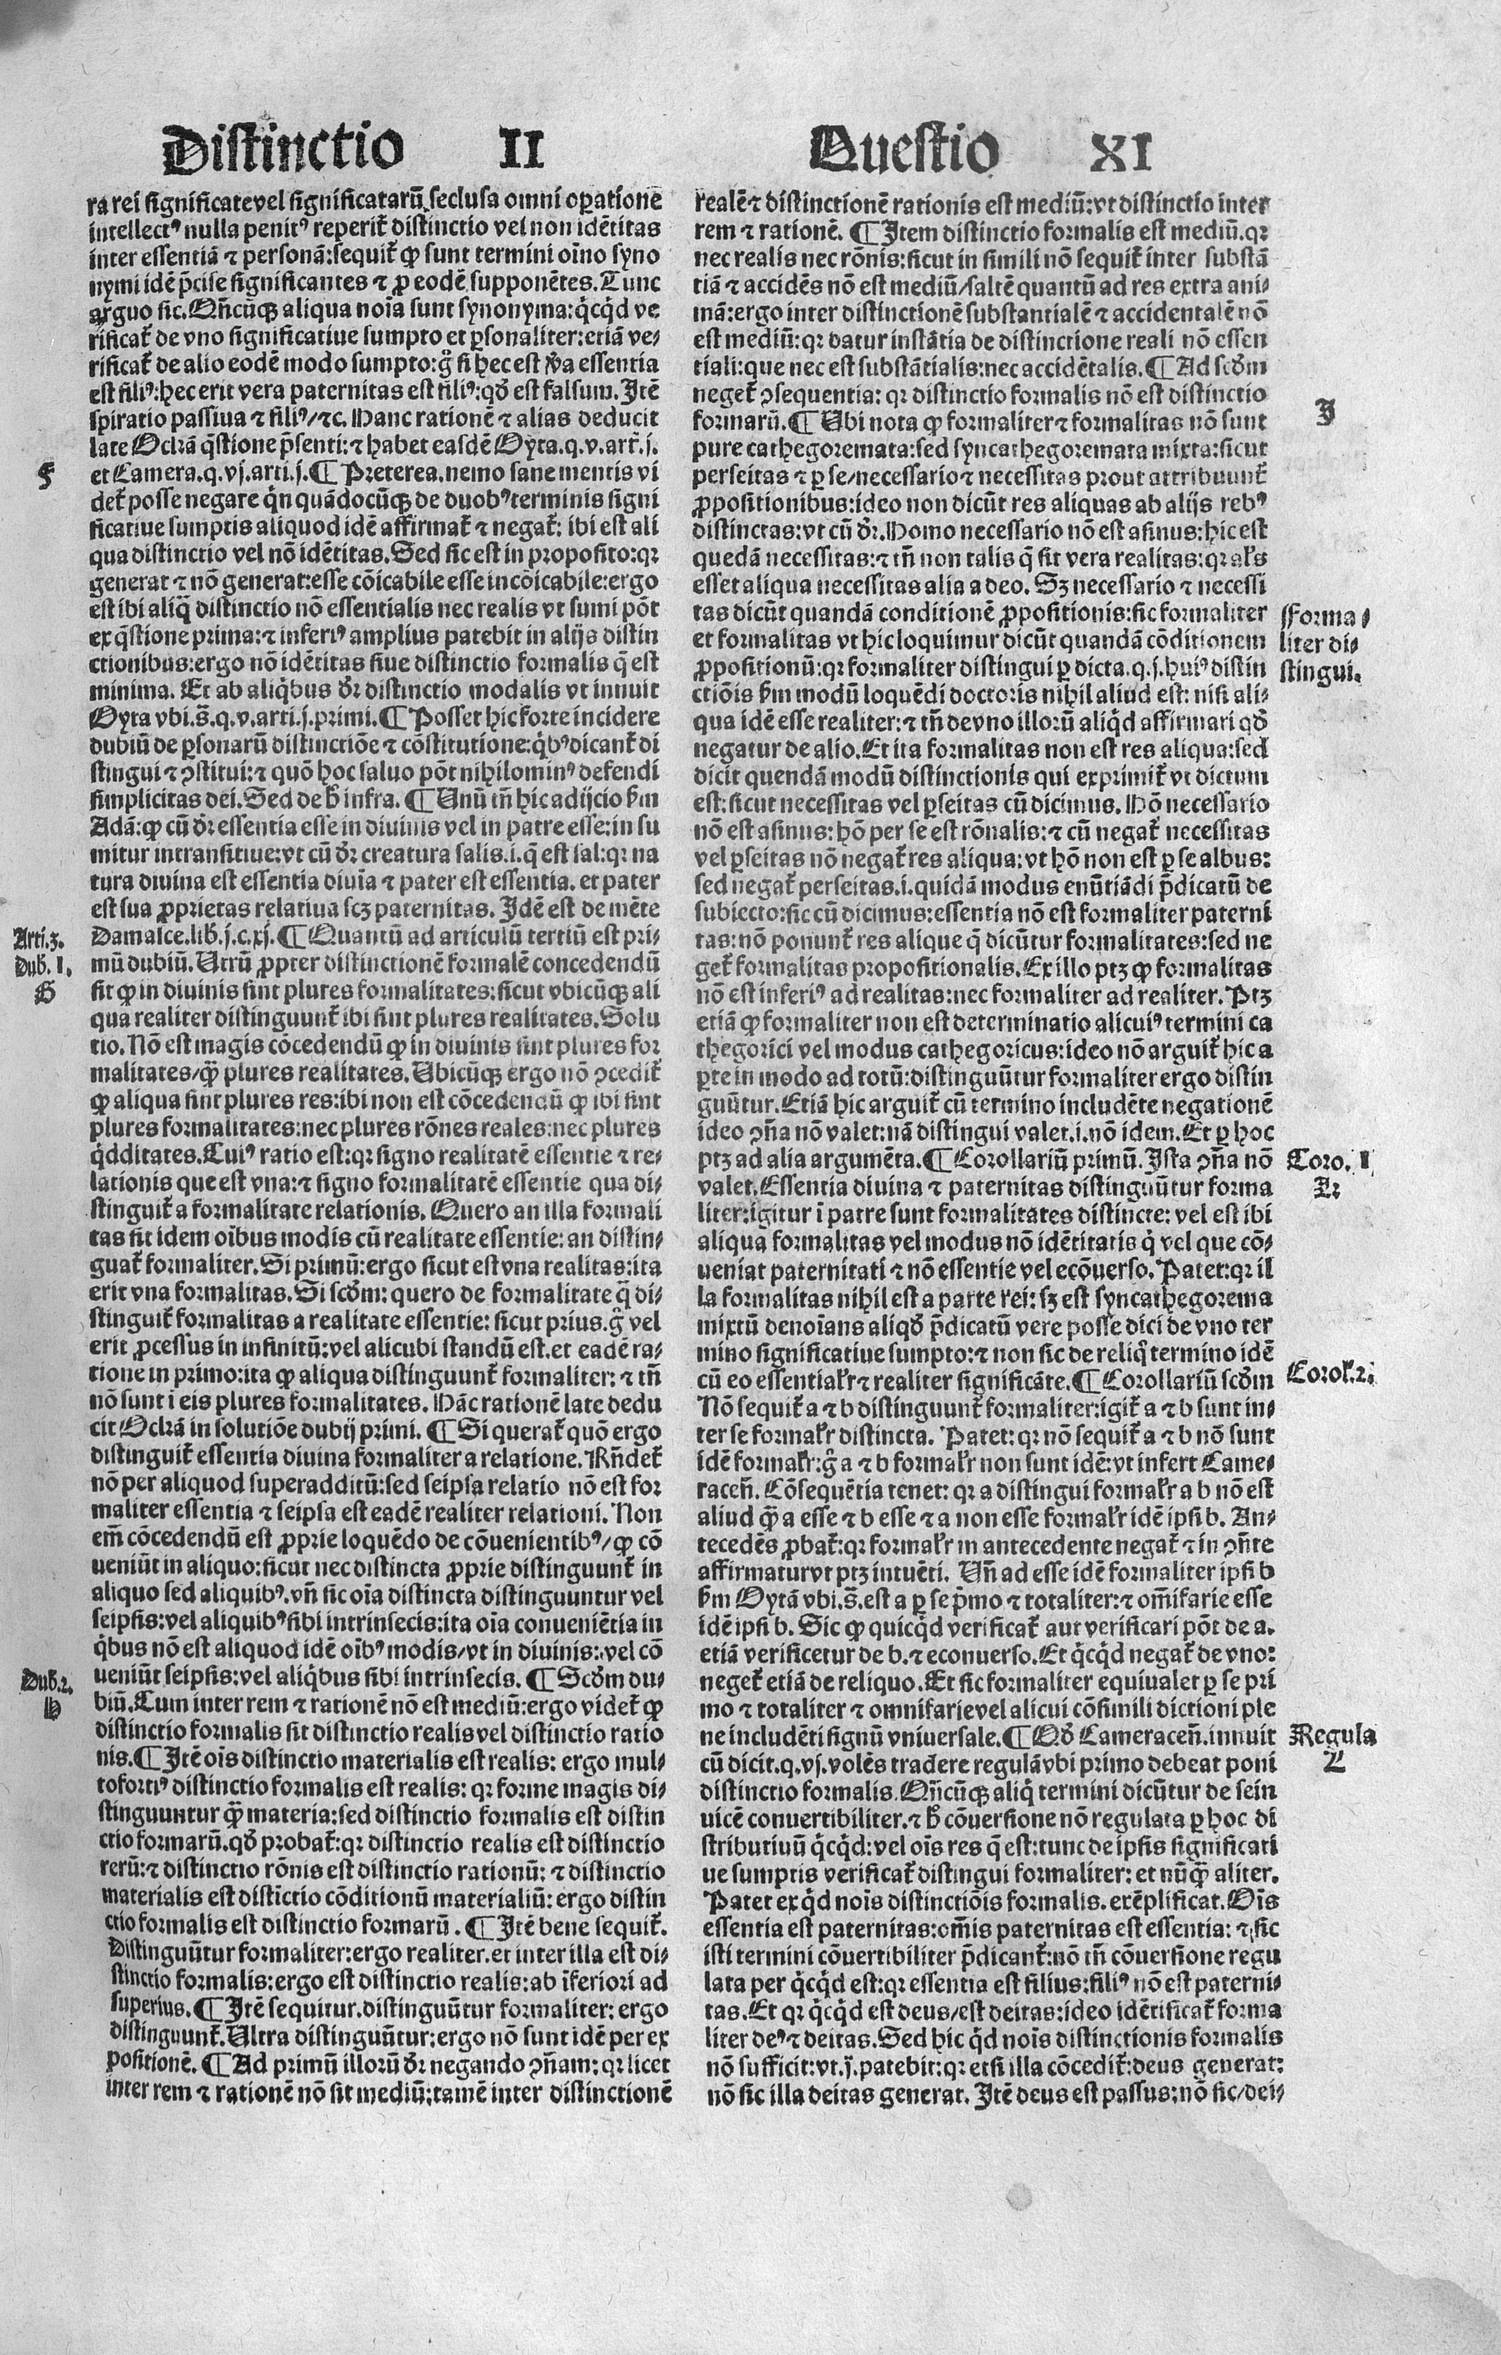 Distinctio II
Questio XI
ra rei significate vel significatarũ seclusa omni oꝑatione
intellectꝰ nulla penitꝰ reperit᷑ distinctio vel non idẽtitas
inter essentiã ⁊ personã: sequit᷑ ꝙ sunt termini oĩno syno
nymi idẽ p̃cise significantes ⁊ ꝓ eodẽ supponẽtes. Tunc
arguo sic. Qñcũqꝫ aliqua noĩa sunt synonyma: q̇cq̇d ve
rificat᷑ de vno significatiue sumpto et ꝑsonaliter: etiã ve-
rificat᷑ de alio eodẽ modo sumpto: g̃ si hec est ṽa essentia
est filiꝰ: hec erit vera paternitas est filiꝰ: qð est falsum. Itẽ
spiratio passiua ⁊ filiꝰ/ ⁊c. Hanc rationẽ ⁊ alias deducit
late Ockã q̃stione p̃senti: ⁊ habet easdẽ Oyta. q. v. art᷑. j.
F
et Camera. q. vj. arti. j. ¶ Preterea. nemo sane mentis vi
det᷑ posse negare q̇n quãdocũqꝫ de duobꝰ terminis signi
ficatiue sumptis aliquod idẽ affirmat᷑ ⁊ negat᷑: ibi est ali
qua distinctio vel nõ idẽtitas. Sed sic est in proposito: qr
generat ⁊ nõ generat: esse cõicabile esse incõicabile: ergo
est ibi aliq̃ distinctio nõ essentialis nec realis vt sumi põt
ex q̃stione prima: ⁊ inferiꝰ amplius patebit in alijs distin
ctionibus: ergo nõ idẽtitas siue distinctio formalis q̃ est
minima. Et ab aliq̇bus dr̃ distinctio modalis vt innuit
Oyta vbi. s̃. q. v. arti. j. primi. ¶ Posset hic forte incidere
dubiũ de ꝑsonarũ distinctiõe ⁊ cõstitutione: q̇bꝰ dicant᷑ di
stingui ⁊ ꝯstitui: ⁊ quõ hoc saluo põt nihilominꝰ defendi
simplicitas dei. Sed de h̃ infra. ¶ Unũ tñ hic adijcio ẜm
Adã: ꝙ cũ dr̃ essentia esse in diuinis vel in patre esse: in su
mitur intransitiue: vt cũ dr̃ creatura salis. i. q̃ est sal: qr na
tura diuina est essentia diuĩa ⁊ pater est essentia. et pater
est sua ꝓprietas relatiua scꝫ paternitas. Idẽ est de mẽte
Arti. 3.
Damasce. lib̃. j. c. xj. ¶ Quantũ ad articulũ tertiũ est pri-
Dub̃. I.
mũ dubiũ. Utrũ ꝓpter distinctionẽ formalẽ concedendũ
G
sit ꝙ in diuinis sint plures formalitates: sicut vbicũqꝫ ali
qua realiter distinguunt᷑ ibi sint plures realitates. Solu
tio. Nõ est magis cõcedendũ ꝙ in diuinis sint plures for
malitates/ q̃ꝫ plures realitates. Ubicũqꝫ ergo nõ ꝯcedit᷑
ꝙ aliqua sint plures res: ibi non est cõcedendũ ꝙ ibi sint
plures formalitates: nec plures rõnes reales: nec plures
q̇dditates. Cuiꝰ ratio est: qr signo realitatẽ essentie ⁊ re-
lationis que est vna: ⁊ signo formalitatẽ essentie qua di-
stinguit᷑ a formalitate relationis. Quero an illa formali
tas sit idem oĩbus modis cũ realitate essentie: an distin-
guat᷑ formaliter. Si primũ: ergo sicut est vna realitas: ita
erit vna formalitas. Si scðm: quero de formalitate q̃ di-
stinguit᷑ formalitas a realitate essentie: sicut prius. g̃ vel
erit ꝓcessus in infinitũ: vel alicubi standũ est. et eadẽ ra-
tione in primo: ita ꝙ aliqua distinguunt᷑ formaliter: ⁊ tñ
nõ sunt i eis plures formalitates. Hãc rationẽ late dedu
cit Ockã in solutiõe dubij primi. ¶ Si querat᷑ quõ ergo
distinguit᷑ essentia diuina formaliter a relatione. Rñdet᷑
nõ per aliquod superadditũ: sed seipsa relatio nõ est for
maliter essentia ⁊ seipsa est eadẽ realiter relationi. Non
em̃ cõcedendũ est ꝓprie loquẽdo de cõuenientibꝰ/ ꝙ cõ
ueniũt in aliquo: sicut nec distincta ꝓprie distinguunt᷑ in
aliquo sed aliquibꝰ. vñ sic oĩa distincta distinguuntur vel
seipsis: vel aliquibꝰ sibi intrinsecis: ita oĩa conueniẽtia in
q̇bus nõ est aliquod idẽ oĩbꝰ modis/ vt in diuinis: vel cõ
Dub̃. 2.
ueniũt seipsis: vel aliq̇bus sibi intrinsecis. ¶ Scðm du-
H
biũ. Cum inter rem ⁊ rationẽ nõ est mediũ: ergo videt᷑ ꝙ
distinctio formalis sit distinctio realis vel distinctio ratio
nis. ¶ Itẽ oĩs distinctio materialis est realis: ergo mul-
tofortiꝰ distinctio formalis est realis: qr forme magis di-
stinguuntur q̃ꝫ materia: sed distinctio formalis est distin
ctio formarũ. qð probat᷑: qr distinctio realis est distinctio
rerũ: ⁊ distinctio rõnis est distinctio rationũ: ⁊ distinctio
materialis est distĩctio cõditionũ materialiũ: ergo distin
ctio formalis est distinctio formarũ. ¶ Itẽ bene sequit᷑.
Distinguũtur formaliter: ergo realiter. et inter illa est di-
stinctio formalis: ergo est distinctio realis: ab ĩferiori ad
superius. ¶ Itẽ sequitur. distinguũtur formaliter: ergo
distinguunt᷑. Ultra distinguũtur: ergo nõ sunt idẽ per ex
positionẽ. ¶ Ad primũ illorũ dr̃ negando ꝯñam: qr licet
inter rem ⁊ rationẽ nõ sit mediũ: tamẽ inter distinctionẽ
realẽ ⁊ distinctionẽ rationis est mediũ: vt distinctio inter
rem ⁊ rationẽ. ¶ Item distinctio formalis est mediũ. qr
nec realis nec rõnis: sicut in simili nõ sequit᷑ inter substã
tiã ⁊ accidẽs nõ est mediũ/ saltẽ quantũ ad res extra ani-
mã: ergo inter distinctionẽ substantialẽ ⁊ accidentalẽ nõ
est mediũ: qr datur instãtia de distinctione reali nõ essen
tiali: que nec est substãtialis: nec accidẽtalis. ¶ Ad scðm
neget᷑ ꝯsequentia: qr distinctio formalis nõ est distinctio
I
formarũ. ¶ Ubi nota ꝙ formaliter ⁊ formalitas nõ sunt
pure cathegoremata: sed syncathegoremata mixta: sicut
perseitas ⁊ ꝑ se/ necessario ⁊ necessitas prout attribuunt᷑
ꝓpositionibus: ideo non dicũt res aliquas ab alijs rebꝰ
distinctas: vt cũ dr̃. Homo necessario nõ est asinus: hic est
quedã necessitas: ⁊ tñ non talis q̃ sit vera realitas: qr al's
esset aliqua necessitas alia a deo. Sꝫ necessario ⁊ necessi
Forma-
tas dicũt quandã conditionẽ ꝓpositionis: sic formaliter
liter di-
et formalitas vt hic loquimur dicũt quandã cõditionem
stingui.
ꝓpositionũ: qr formaliter distingui ꝑ dicta. q. j. huiꝰ distin
ctiõis ẜm modũ loquẽdi doctoris nihil aliud est: nisi ali-
qua idẽ esse realiter: ⁊ tñ de vno illorũ aliq̇d affirmari qð
negatur de alio. Et ita formalitas non est res aliqua: sed
dicit quendã modũ distinctionis qui exprimit᷑ vt dictum
est: sicut necessitas vel ꝑseitas cũ dicimus. Hõ necessario
nõ est asinus: hõ per se est rõnalis: ⁊ cũ negat᷑ necessitas
vel ꝑseitas nõ negat᷑ res aliqua: vt hõ non est ꝑ se albus:
sed negat᷑ perseitas. i. quidã modus enũtiãdi p̃dicatũ de
subiecto: sic cũ dicimus: essentia nõ est formaliter paterni
tas: nõ ponunt᷑ res alique q̃ dicũtur formalitates: sed ne
get᷑ formalitas propositionalis. Ex illo ptꝫ ꝙ formalitas
nõ est inferiꝰ ad realitas: nec formaliter ad realiter. Ptꝫ
etiã ꝙ formaliter non est determinatio alicuiꝰ termini ca
thegorici vel modus cathegoricus: ideo nõ arguit᷑ hic a
ꝑte in modo ad totũ: distinguũtur formaliter ergo distin
guũtur. Etiã hic arguit᷑ cũ termino includẽte negationẽ
ideo ꝯña nõ valet: nã distingui valet. i. nõ idem. Et ꝑ hoc
Coro. I
ptꝫ ad alia argumẽta. ¶ Corollariũ primũ. Ista ꝯña nõ
K
valet. Essentia diuina ⁊ paternitas distinguũtur forma
liter: igitur ĩ patre sunt formalitates distincte: vel est ibi
aliqua formalitas vel modus nõ idẽtitatis q̇ vel que cõ-
ueniat paternitati ⁊ nõ essentie vel ecõuerso. Patet: qr il
la formalitas nihil est a parte rei: sꝫ est syncathegorema
mixtũ denoĩans aliqð p̃dicatũ vere posse dici de vno ter
mino significatiue sumpto: ⁊ non sic de reliq̇ termino idẽ
Corol'. 2.
cũ eo essentialr ⁊ realiter significãte. ¶ Corollariũ scðm
Nõ sequit᷑ a ⁊ b distinguunt᷑ formaliter: igit᷑ a ⁊ b sunt in-
ter se formalr distincta. Patet: qr nõ sequit᷑ a ⁊ b nõ sunt
idẽ formalr: g̃ a ⁊ b formalr non sunt idẽ: vt infert Came-
raceñ. Cõsequẽtia tenet: qr a distingui formalr a b nõ est
aliud q̃ꝫ a esse ⁊ b esse ⁊ a non esse formalr idẽ ipsi b. An-
tecedẽs ꝓbat᷑: qr formalr in antecedente negat᷑ ⁊ in ꝯñte
affirmatur vt ptꝫ intuẽti. Uñ ad esse idẽ formaliter ipsi b
ẜm Oytã vbi. s̃. est a ꝑ se p̃mo ⁊ totaliter: ⁊ om̃ifarie esse
idẽ ipsi b. Sic ꝙ quicq̇d verificat᷑ aut verificari põt de a.
etiã verificetur de b. ⁊ econuerso. Et q̇cq̇d negat᷑ de vno:
neget᷑ etiã de reliquo. Et sic formaliter equiualet ꝑ se pri
mo ⁊ totaliter ⁊ omnifarie vel alicui cõsimili dictioni ple
Regula
ne includẽti signũ vniuersale. ¶ Qð Cameraceñ. innuit
L
cũ dicit. q. vj. volẽs tradere regulã vbi primo debeat poni
distinctio formalis. Qñcũqꝫ aliq̇ termini dicũtur de sein
uicẽ conuertibiliter. ⁊ h̃ cõuersione nõ regulata ꝑ hoc di
stributiuũ q̇cq̇d: vel oĩs res q̃ est: tunc de ipsis significati
ue sumptis verificat᷑ distingui formaliter: et nũq̃ꝫ aliter.
Patet ex q̇d noĩs distinctiõis formalis. exẽplificat. Oĩs
essentia est paternitas: om̃is paternitas est essentia: ⁊ sic
isti termini cõuertibiliter p̃dicant᷑: nõ tñ cõuersione regu
lata per q̇cq̇d est: qr essentia est filius: filiꝰ nõ est paterni-
tas. Et qr q̇cq̇d est deus/ est deitas: ideo idẽtificat᷑ forma
liter deꝰ ⁊ deitas. Sed hic q̇d noĩs distinctionis formalis
nõ sufficit: vt. j̃. patebit: qr etsi illa cõcedit᷑: deus generat:
nõ sic illa deitas generat. Itẽ deus est passus: nõ sic/ dei-